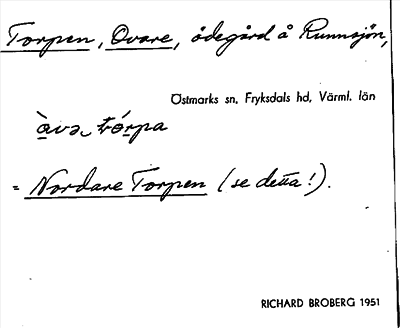 Torpen, Ovare, ödegård å Runnsjön,
Östmarks sn, Fryksdals hd, Värml. län
ò̱və tórpa
= Nordare Torpen (se detta!).
RICHARD BROBERG 1951